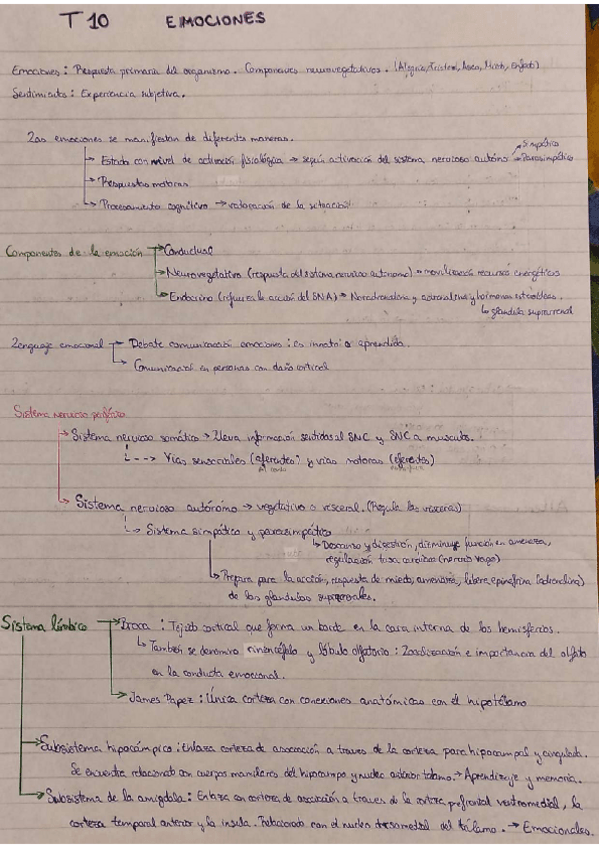 T 10 EMOCIONES
Emociones: Respuesta primaria del organismo. Componentes neurovegetativos. (Alegría, Tristeza, Asco, Miedo, Enfado)
Sentimientos: Experiencia subjetiva.
Las emociones se manifiestan de diferentes maneras.
→ Estado con nivel de activación fisiológica → según activación del sistema nervioso autóno → Simpático
→ Parasimpático
→ Respuestas motoras
→ Procesamiento cognitivo → valoración de la situación
Componentes de la emoción → Conductual
→ Neurovegetativo (respuesta del sistema nervioso autónomo) → movilización recursos energéticos
→ Endocrino (refuerza la acción del SNA) → Noradrenalina y adrenalina y hormonas esteroideas.
↳ glándula suprarrenal
Lenguaje emocional → Debate comunicación emociones: es innato o aprendido.
→ Comunicación en personas con daño cortical
Sistema nervioso periférico
→ Sistema nervioso somático → Lleva información sentidos al SNC y SNC a musculos.
↳ --> Vías sensoriales (aferentes) y vías motoras (eferentes)
→ Sistema nervioso autónómo → vegetativo o visceral. (Regula las vísceras)
↳ Sistema simpático y parasimpático
↳ Descanso y digestión, disminuye función en amenaza,
regulación tasa cardiaca (nervio vago)
↳ Prepara para la acción, respuesta de miedo, amenaza, libera epinefrina (adrenalina)
de las glandulas suprarrenales.
Sistema límbico → Broca: Tejido cortical que forma un borde en la cara interna de los hemisferios.
↳ También se denomino rinencéfalo y lóbulo olfatorio: Localización e importancia del olfato
en la conducta emocional.
→ James Papez: Única corteza con conexiones anatómicas con el hipotálamo
→ Subsistema hipocámpico: Enlaza corteza de asociación a traves de la corteza parahipocampal y cingulada.
Se encuentra relacionado con cuerpos mamilares del hipocampo y nucleo anterior tálamo. → Aprendizaje y memoria.
→ Subsistema de la amígdala: Enlaza con corteza de asociación a traves de la corteza prefrontal ventromedial, la
corteza temporal anterior y la ínsula. Relacionado con el nucleo dorsomedial del tálamo. → Emocionales.